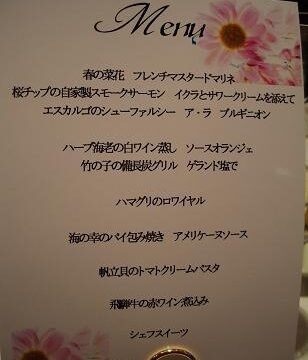 Menu
春の菜花　フレンチマスタードマリネ
桜チップの自家製スモークサーモン　イクラとサワークリームを添えて
エスカルゴのシューファルシー　ア・ラ　ブルギニオン
ハーブ海老の白ワイン蒸し　ソースオランジェ
竹の子の備長炭グリル　ゲランド塩で
ハマグリのロワイヤル
海の幸のパイ包み焼き　アメリケーヌソース
帆立貝のトマトクリームパスタ
飛騨牛の赤ワイン煮込み
シェフスイーツ